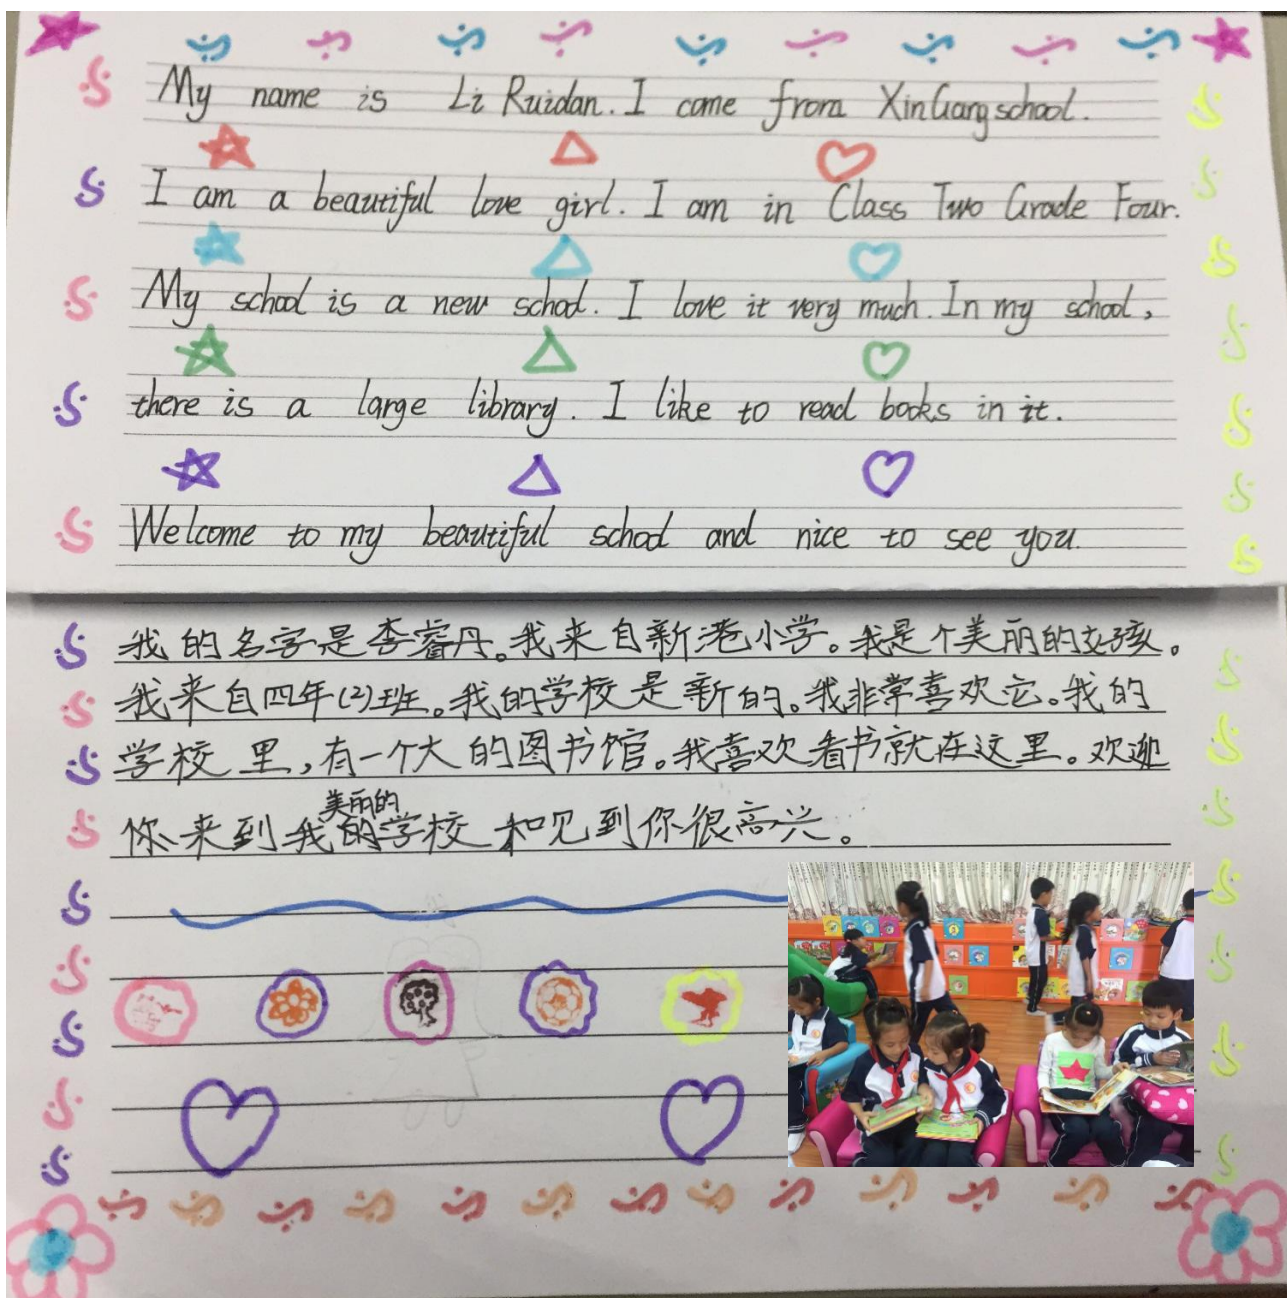 My name is Li Ruidan. I come from XinGang school.
I am a beautiful love girl. I am in Class Two Grade Four.
My school is a new school. I love it very much. In my school,
there is a large library. I like to read books in it.
Welcome to my beautiful school and nice to see you.
我的名字是李睿丹。我来自新港小学。我是个美丽的女孩。
我来自四年(2)班。我的学校是新的。我非常喜欢它。我的
学校里,有一个大的图书馆。我喜欢看书就在这里。欢迎
美丽的
你来到我的学校和见到你很高兴。